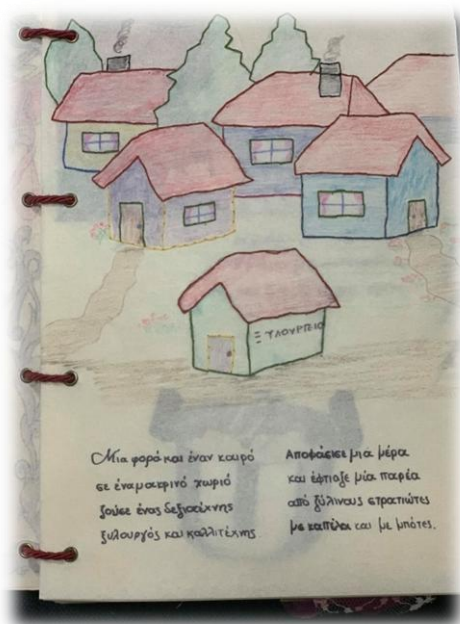 ΞΥΛΟΥΡΓΕΙΟ
Μια φορά και έναν καιρό
σε ένα μακρινό χωριό
ζούσε ένας δεξιοτέχνης
ξυλουργός και καλλιτέχνης
Αποφάσισε μια μέρα
και έφτιαξε μία παρέα
από ξύλινους στρατιώτες
με καπέλα και με μπότες.